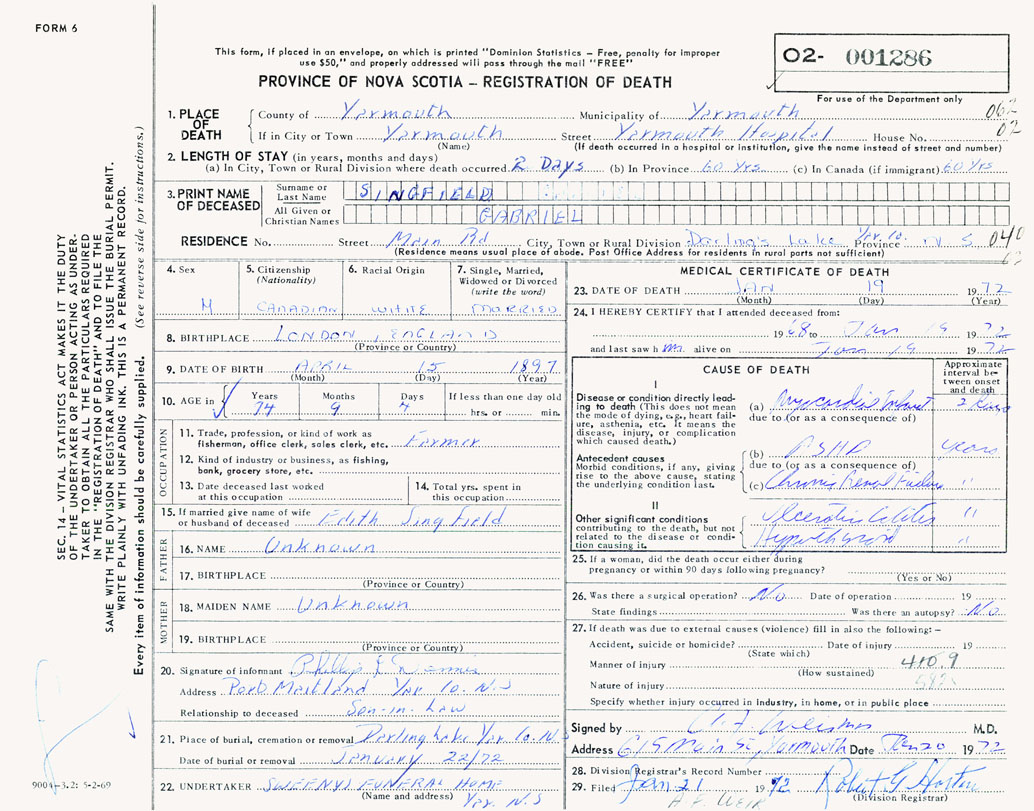 FORM 6
This form, if placed in an envelope, on which is printed "Dominion Statistics – Free, penalty for improper
use $50," and properly addressed will pass through the mail "FREE"
PROVINCE OF NOVA SCOTIA – REGISTRATION OF DEATH
O2- 001286
For use of the Department only
SEC. 14 – VITAL STATISTICS ACT MAKES IT THE DUTY
OF THE UNDERTAKER OR PERSON ACTING AS UNDER-
TAKER TO OBTAIN ALL THE PARTICULARS REQUIRED
IN THE "REGISTRATION OF DEATH" AND TO FILE THE
SAME WITH THE DIVISION REGISTRAR WHO SHALL ISSUE THE BURIAL PERMIT.
WRITE PLAINLY WITH UNFADING INK. THIS IS A PERMANENT RECORD.
Every item of information should be carefully supplied. (See reverse side for instructions.)
1. PLACE OF DEATH
County of Yarmouth Municipality of Yarmouth 062
If in City or Town Yarmouth Street Yarmouth Hospital House No. 02
(Name) (If death occurred in a hospital or institution, give the name instead of street and number)
2. LENGTH OF STAY (in years, months and days)
(a) In City, Town or Rural Division where death occurred 2 Days (b) In Province 60 Yrs (c) In Canada (if immigrant) 60 Yrs
3. PRINT NAME OF DECEASED
Surname or Last Name SINGFIELD
All Given or Christian Names GABRIEL
RESIDENCE No. Street Main Rd City, Town or Rural Division Darling's Lake Yar. Co. Province N S 040
(Residence means usual place of abode. Post Office Address for residents in rural parts not sufficient)
4. Sex M
5. Citizenship (Nationality) CANADIAN
6. Racial Origin WHITE
7. Single, Married, Widowed or Divorced (write the word) MARRIED
8. BIRTHPLACE LONDON, ENGLAND
(Province or Country)
9. DATE OF BIRTH APRIL 15 1897
(Month) (Day) (Year)
10. AGE in Years 74 Months 9 Days 4 If less than one day old hrs. or min.
OCCUPATION
11. Trade, profession, or kind of work as
fisherman, office clerk, sales clerk, etc. Farmer
12. Kind of industry or business, as fishing,
bank, grocery store, etc.
13. Date deceased last worked
at this occupation
14. Total yrs. spent in
this occupation
15. If married give name of wife
or husband of deceased Edith Singfield
FATHER
16. NAME Unknown
17. BIRTHPLACE
(Province or Country)
MOTHER
18. MAIDEN NAME Unknown
19. BIRTHPLACE
(Province or Country)
20. Signature of informant
Address Port Maitland Yar. Co. N.S
Relationship to deceased Son-in-Law
21. Place of burial, cremation or removal Darling Lake Yar. Co. N.S
Date of burial or removal January 22/72
22. UNDERTAKER SWEENYS FUNERAL HOME
(Name and address) Yar. N.S
9004–3.2: 5-2-69
MEDICAL CERTIFICATE OF DEATH
23. DATE OF DEATH JAN 19 1972
(Month) (Day) (Year)
24. I HEREBY CERTIFY that I attended deceased from:
19 68 to Jan 19 1972
and last saw h im alive on Jan 19 1972
CAUSE OF DEATH
Approximate interval between onset and death
I
Disease or condition directly lead-
ing to death (This does not mean
the mode of dying, e.g., heart fail-
ure, asthenia, etc. It means the
disease, injury, or complication
which caused death.)
(a) Myocardial Infarct 2 days
due to (or as a consequence of)
Antecedent causes
Morbid conditions, if any, giving
rise to the above cause, stating
the underlying condition last.
(b) ASHD years
due to (or as a consequence of)
(c) Chronic Renal Failure "
II
Other significant conditions
contributing to the death, but not
related to the disease or condi-
tion causing it.
Ulcerative Colitis "
Hypothyroid "
25. If a woman, did the death occur either during
pregnancy or within 90 days following pregnancy?
(Yes or No)
26. Was there a surgical operation? No Date of operation 19
State findings Was there an autopsy? No
27. If death was due to external causes (violence) fill in also the following: –
Accident, suicide or homicide? Date of injury 19
(State which)
Manner of injury 410.9
(How sustained)
Nature of injury
Specify whether injury occurred in industry, in home, or in public place
Signed by M.D.
Address 615 Main St, Yarmouth Date Jan 20 1972
28. Division Registrar's Record Number
29. Filed Jan 21 1972 Robert G Horton
A.F. WEIR (Division Registrar)